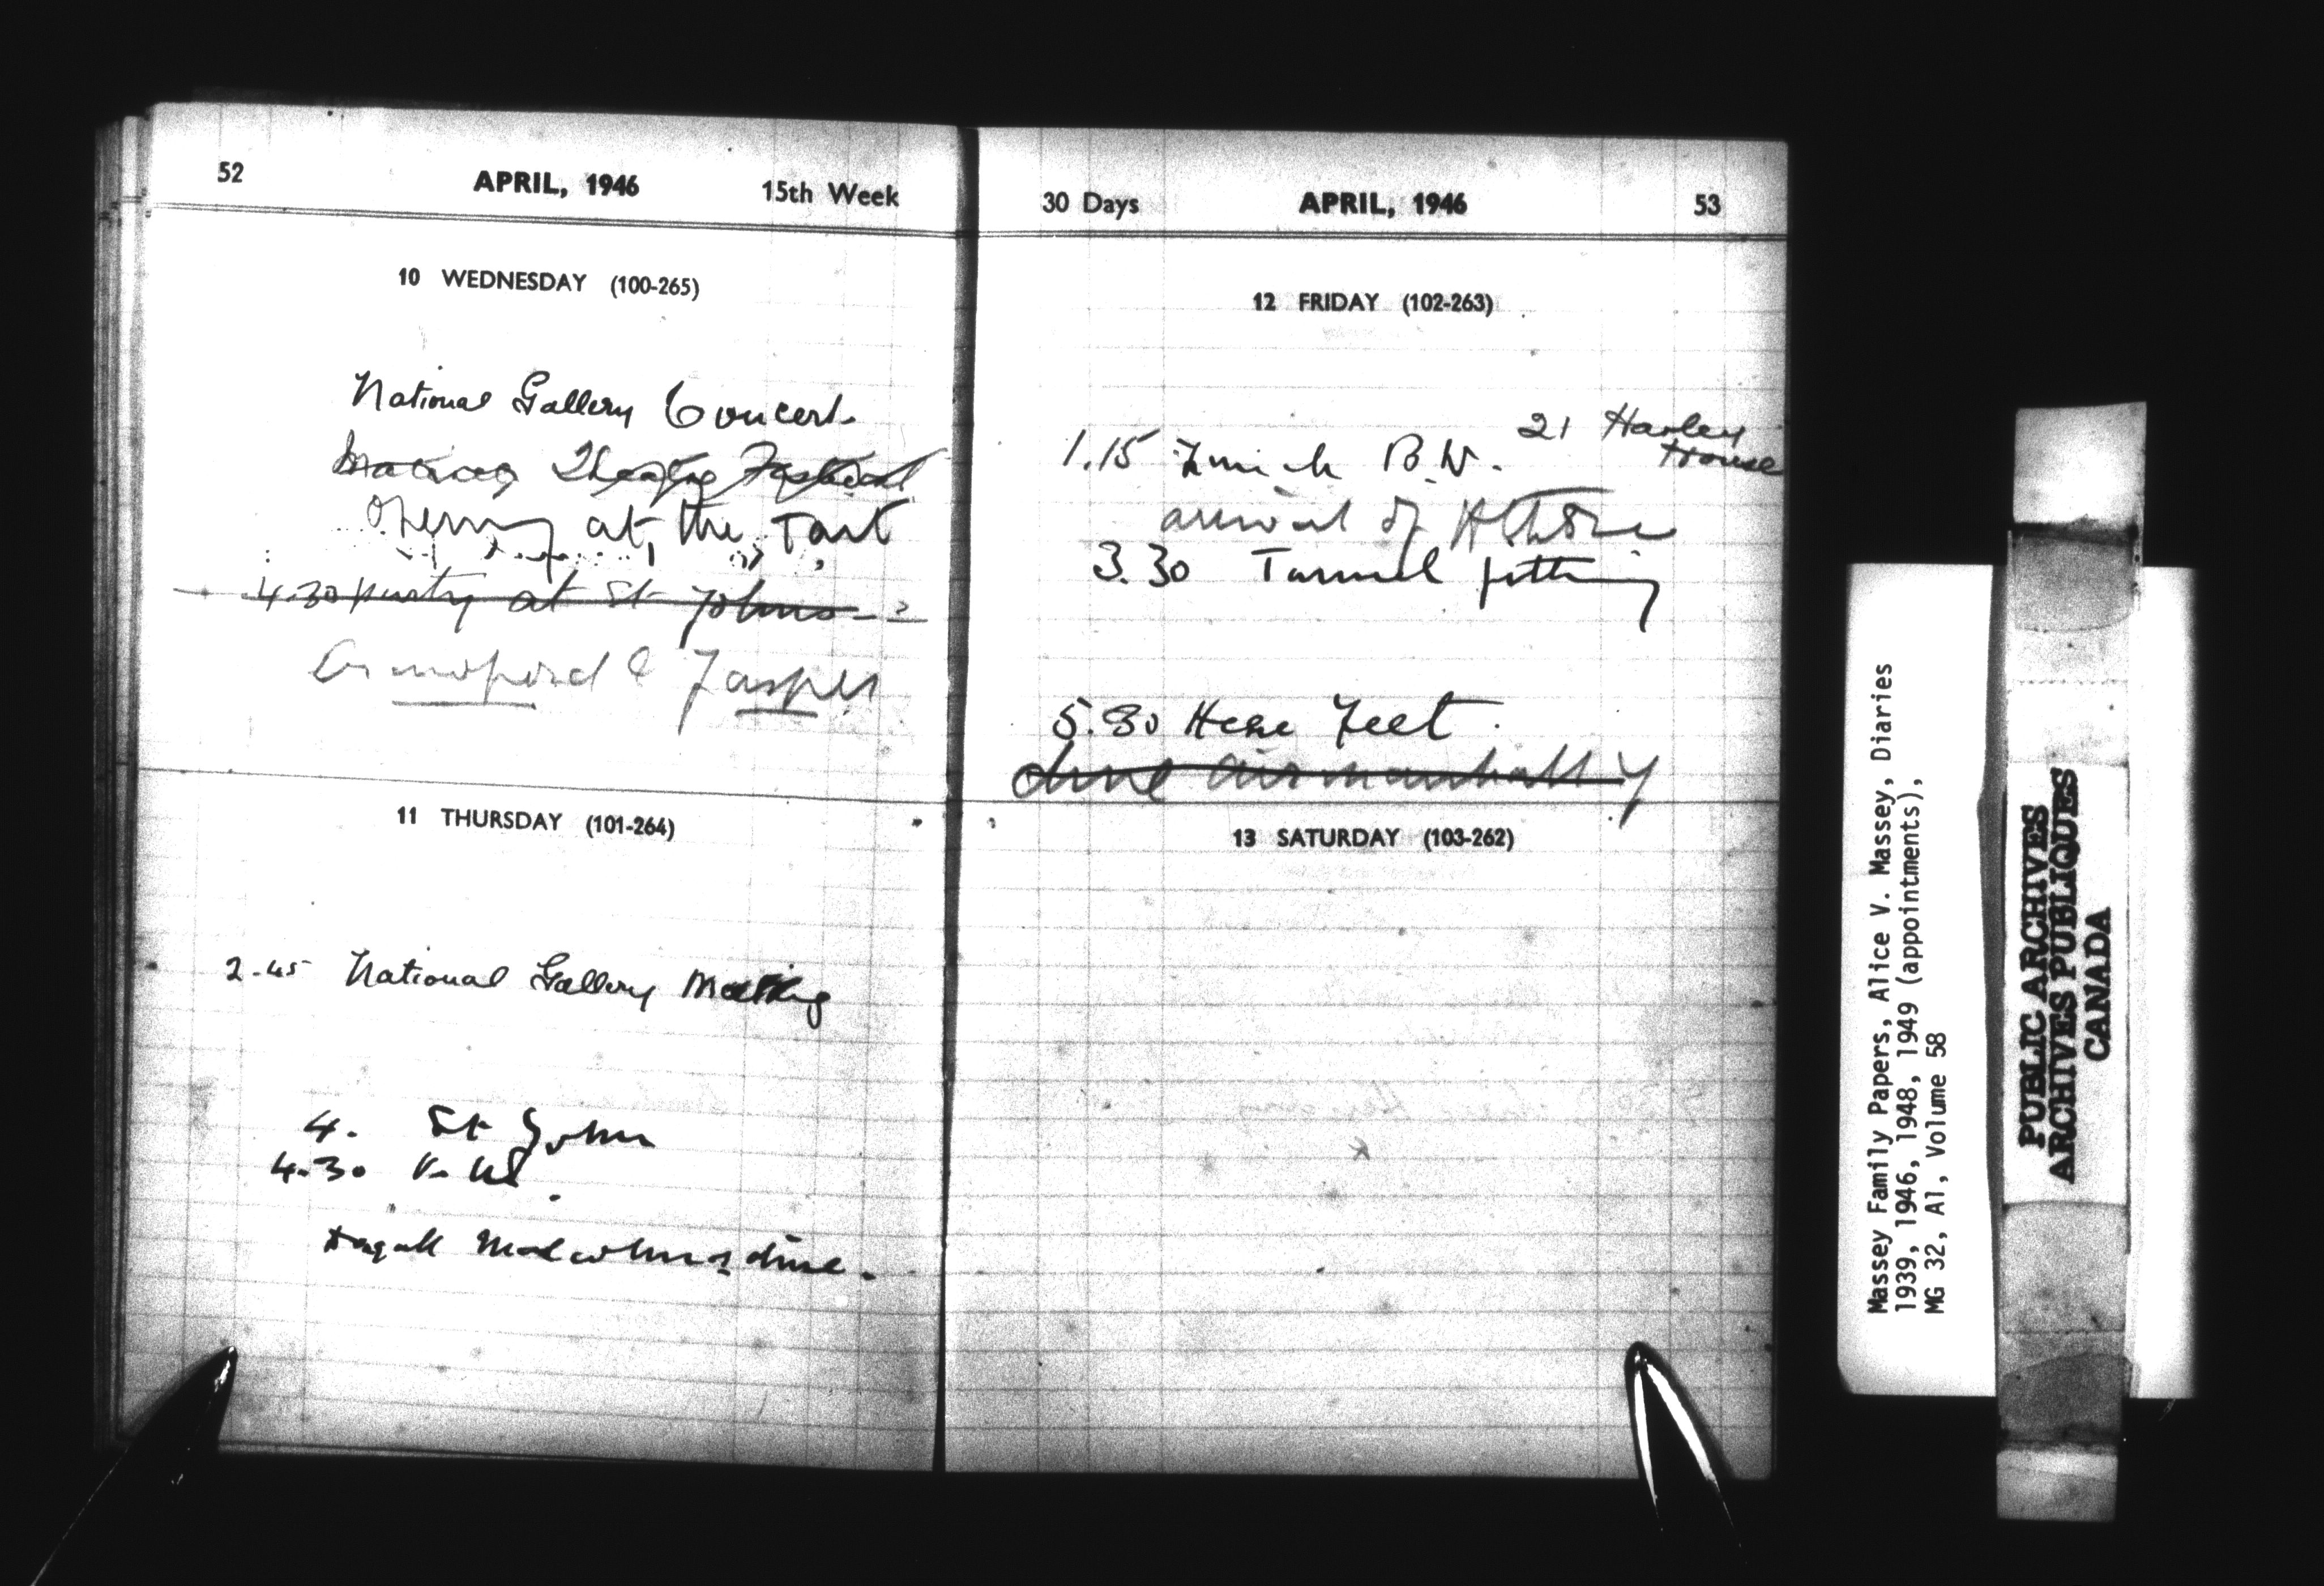 52
APRIL, 1946
15th Week
10 WEDNESDAY (100-265)
National Gallery Concert.
Theatre Festival
Opening at the Tart
4.30 party at St Johns - ?
& Jasper
11 THURSDAY (101-264)
2.45 National Gallery Meeting
4. St John
4.30 V.
Malcolm dine.
30 Days
APRIL, 1946
53
12 FRIDAY (102-263)
21 Harley
House
1.15 Lunch B.W.
arrival of
3.30 fitting
5.30 Here Feet.
dine
13 SATURDAY (103-262)
Massey Family Papers, Alice V. Massey, Diaries
1939, 1946, 1948, 1949 (appointments),
MG 32, A1, Volume 58
PUBLIC ARCHIVES
ARCHIVES PUBLIQUES
CANADA